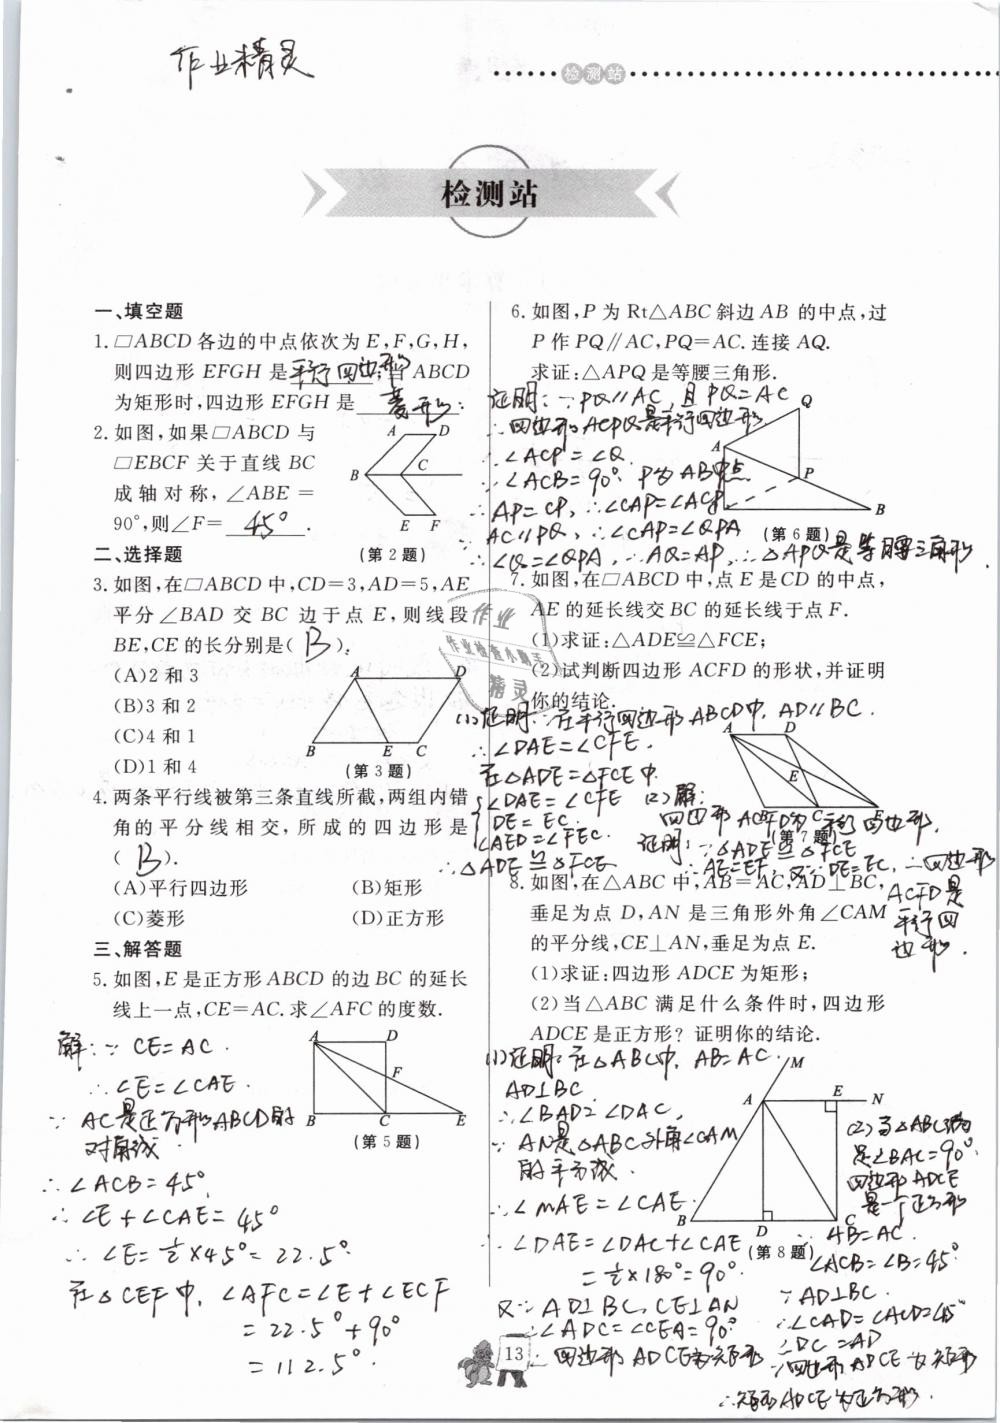 作业精灵
检测站
检测站
一、填空题
1.□ABCD各边的中点依次为E,F,G,H,
则四边形EFGH是平行四边形;当ABCD
为矩形时,四边形EFGH是 菱形.
2.如图,如果□ABCD与
□EBCF关于直线BC
成轴对称,∠ABE=
90°,则∠F= 45° .
A D
B C
E F
(第2题)
二、选择题
3.如图,在□ABCD中,CD=3,AD=5,AE
平分∠BAD交BC边于点E,则线段
BE,CE的长分别是( B ).
(A)2和3
(B)3和2
(C)4和1
(D)1和4
A D
B E C
(第3题)
4.两条平行线被第三条直线所截,两组内错
角的平分线相交,所成的四边形是
( B ).
(A)平行四边形 (B)矩形
(C)菱形 (D)正方形
三、解答题
5.如图,E是正方形ABCD的边BC的延长
线上一点,CE=AC.求∠AFC的度数.
A D
F
B C E
(第5题)
解:∵CE=AC.
∴∠E=∠CAE.
∵AC是正方形ABCD的
对角线
∴∠ACB=45°
∴∠E+∠CAE=45°
∴∠E=½×45°=22.5°
在△CEF中,∠AFC=∠E+∠ECF
=22.5°+90°
=112.5°.
6.如图,P为Rt△ABC斜边AB的中点,过
P作PQ∥AC,PQ=AC.连接AQ.
求证:△APQ是等腰三角形.
证明:∵PQ∥AC,且PQ=AC
∴四边形ACPQ是平行四边形
∴∠ACP=∠Q
∵∠ACB=90°,P为AB中点
∴AP=CP,∴∠CAP=∠ACP
∵AC∥PQ,∴∠CAP=∠QPA
∴∠Q=∠QPA,∴AQ=AP,∴△APQ是等腰三角形.
Q
A
P
B
(第6题)
7.如图,在□ABCD中,点E是CD的中点,
AE的延长线交BC的延长线于点F.
(1)求证:△ADE≌△FCE;
(2)试判断四边形ACFD的形状,并证明
你的结论.
作业
作业检查小助手
精灵
(1)证明:∵在平行四边形ABCD中,AD∥BC.
∴∠DAE=∠CFE.
在△ADE=△FCE中
∠DAE=∠CFE
DE=EC.
∠AED=∠FEC.
∴△ADE≌△FCE
(2)解:
四边形ACFD为平行四边形.
证明:∵△ADE≌△FCE
∴AE=EF,又∵DE=EC,∴四边形
ACFD是
平行四
边形.
A D
E
B C F
(第7题)
8.如图,在△ABC中,AB=AC,AD⊥BC,
垂足为点D,AN是三角形外角∠CAM
的平分线,CE⊥AN,垂足为点E.
(1)求证:四边形ADCE为矩形;
(2)当△ABC满足什么条件时,四边形
ADCE是正方形?证明你的结论.
(1)证明:在△ABC中,AB=AC.
AD⊥BC
∴∠BAD=∠DAC,
∵AN是△ABC外角∠CAM
的平分线.
∴∠MAE=∠CAE.
∴∠DAE=∠DAC+∠CAE
=½×180°=90°.
又∵AD⊥BC,CE⊥AN
∴∠ADC=∠CEA=90°
∴四边形ADCE为矩形
M
A E N
B D C
(第8题)
(2)当△ABC满
足∠BAC=90°
四边形ADCE
是一个正方形
∵AB=AC.
∴∠ACB=∠B=45°
∵AD⊥BC.
∴∠CAD=∠ACD=45°
∴DC=AD
∵四边形ADCE为矩形
∴矩形ADCE为正方形.
13